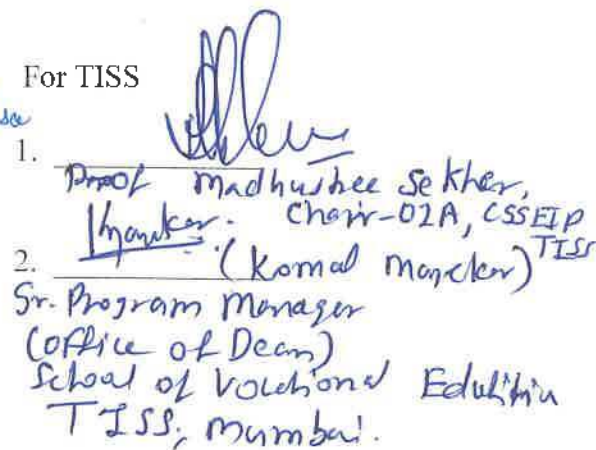 For TISS
1.
Prof Madhushree Sekher,
Chair-OIA, CSSEIP
TISS
2. (Komal Mayekar)
Sr. Program Manager
(office of Dean)
School of Vocational Education
TISS, Mumbai.